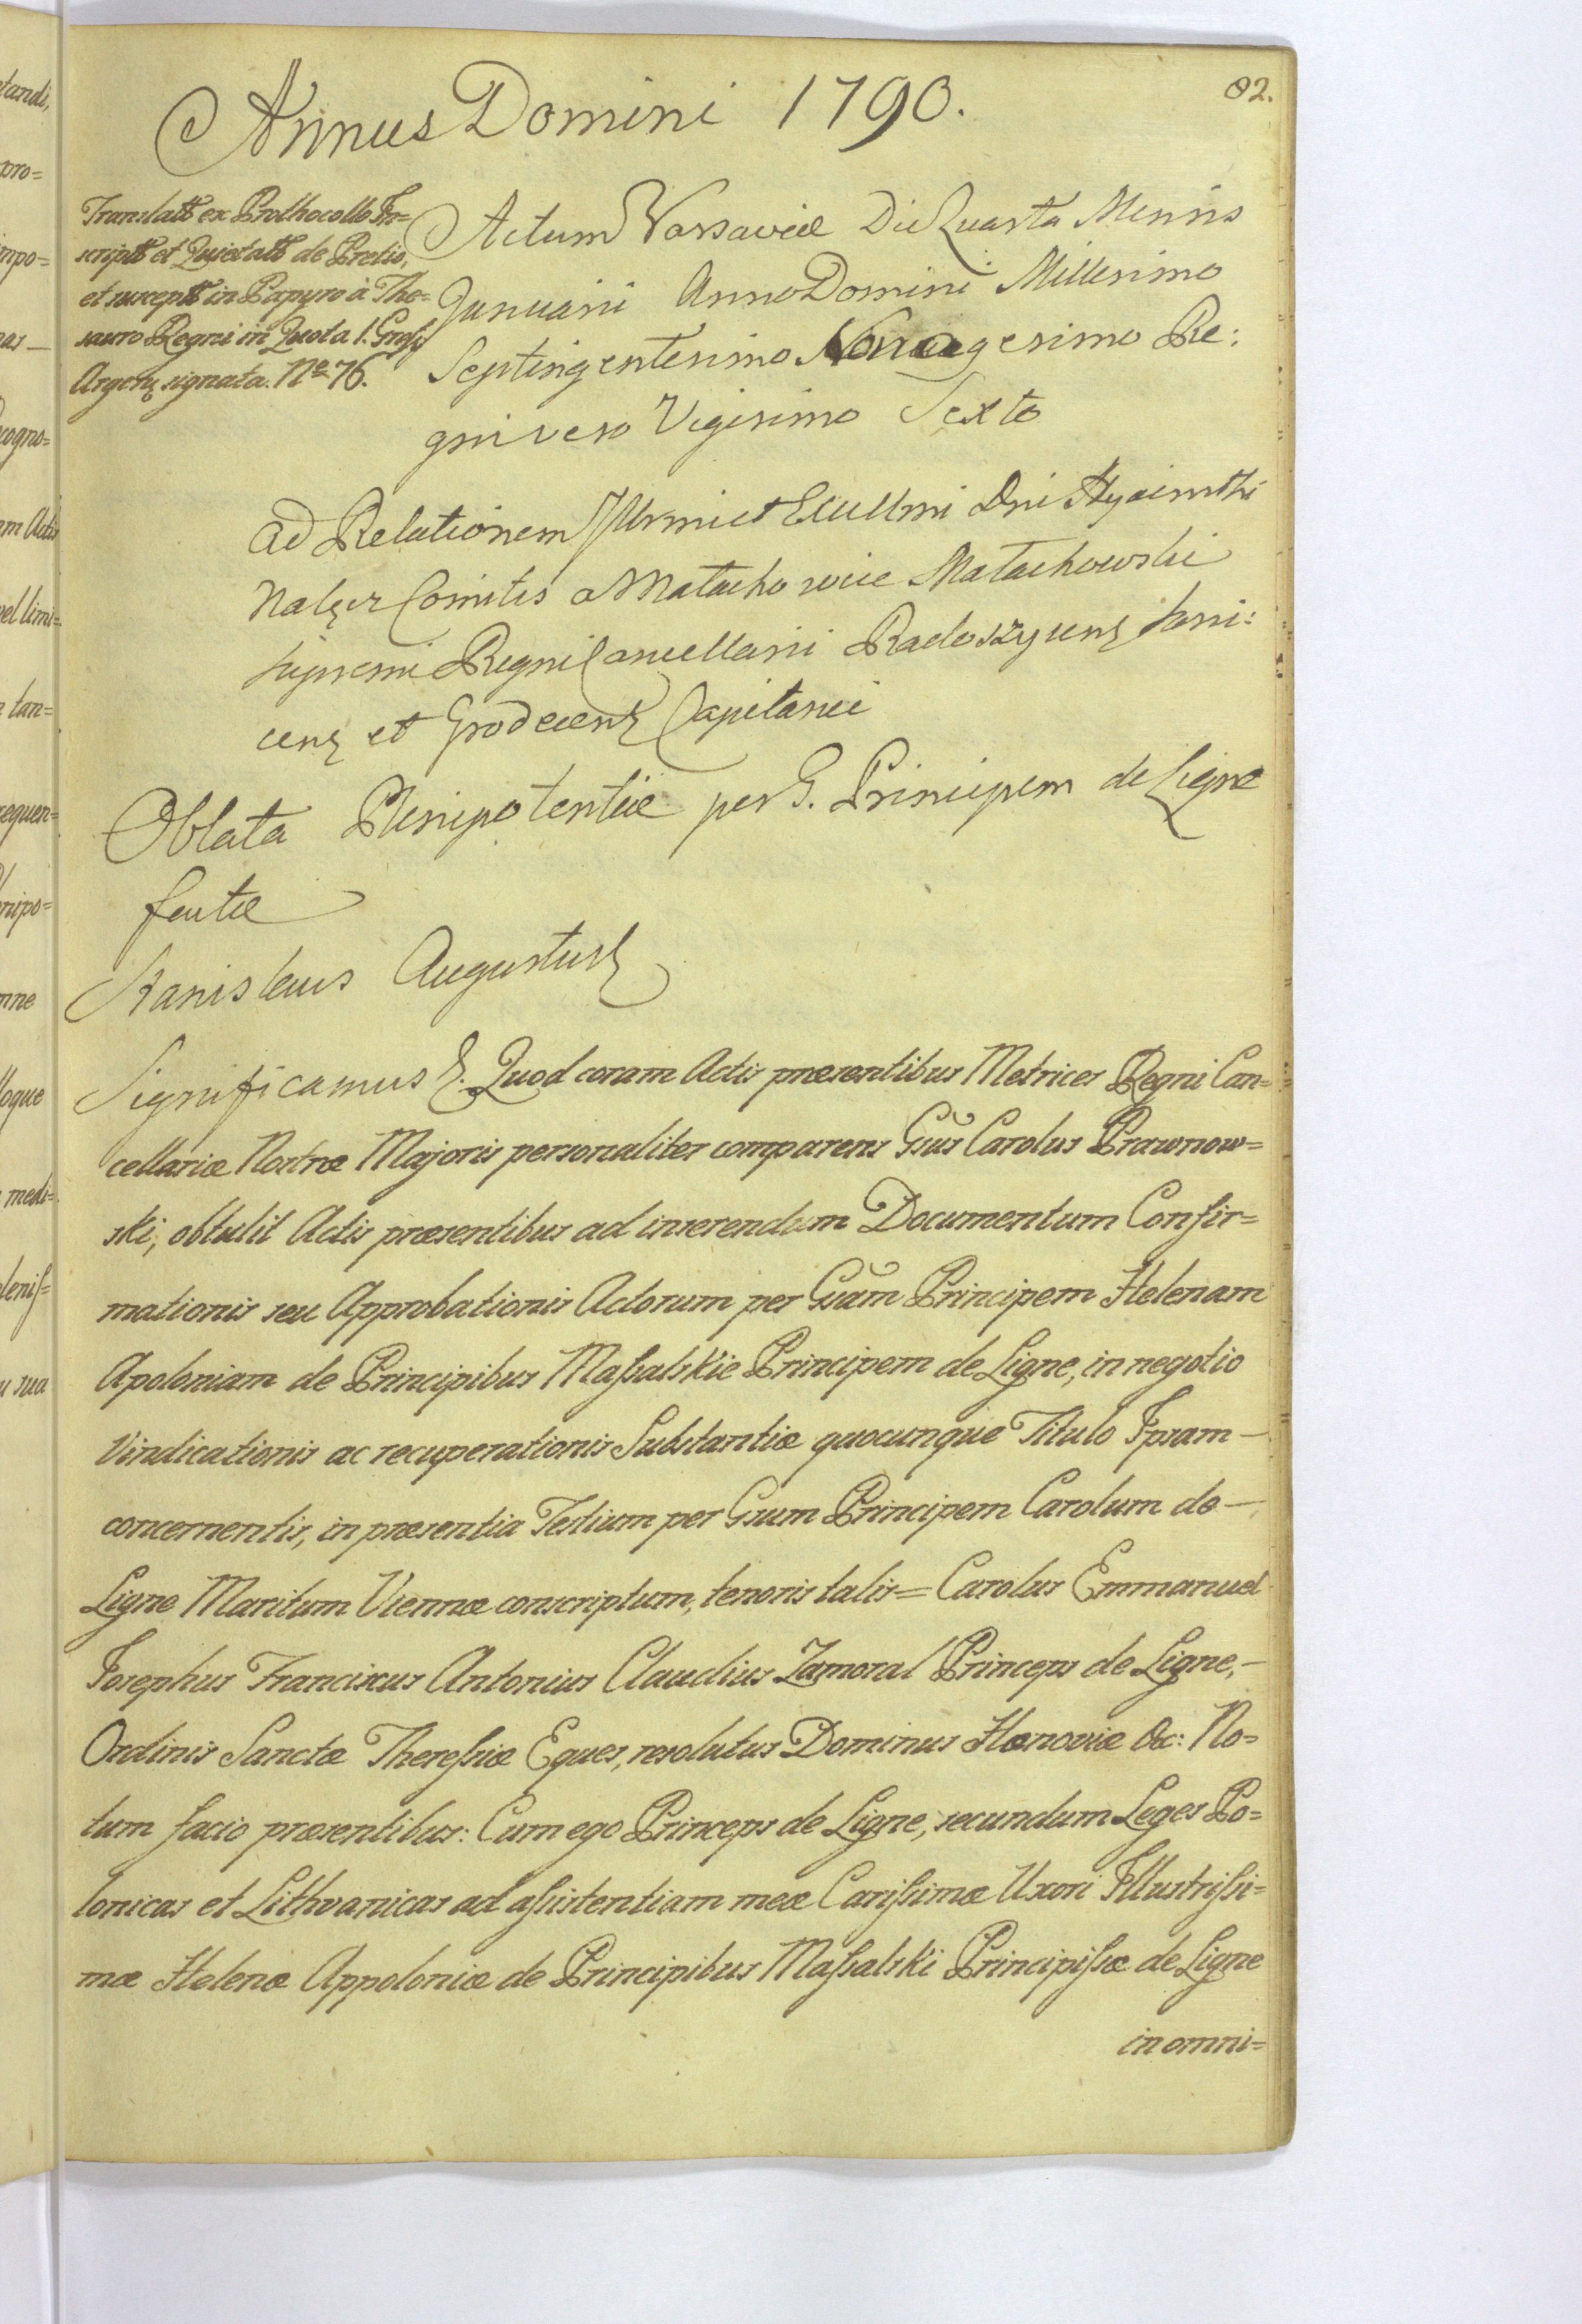 82.
Annus Domini 1790.
Translatt ex Prothocollo In=
scriptt et Quietatt de Pretio,
et suscept in Papyro à The=
sauro Regni in Quota 1. Gross
Argen signata. No 76.
Actum Varsaviæ Die Quarta Mensis
Januarii Anno Domini Millesimo
Septingentesimo Nonagesimo Re:
gni vero Vigesimo Sexto
ad Relationem Illrmi et Excellmi Dni Hyacinthi
Nałęcz Comitis a Małachowice Małachowski
supremi Regni Cancellarii Radoszycens
cens et Grodecens Capitanei
Oblata Plenipotentiæ per G. Principem de Ligne
factæ
Stanislaus Augustus
Significamus &. Quod coram Actis præsentibus Metrices Regni Can=
cellariæ Nostræ Majoris personaliter comparens Gsus Carolus Prawnow=
ski, obtulit Actis præsentibus ad inserendum Documentum Confir=
mationis seu Approbationis Actorum per Gsam Principem Helenam
Apoloniam de Principibus Massalskie Principem de Ligne, in negotio
Vindicationis ac recuperationis Substantiæ quocunque Titulo Ipsam —
concernentis, in præsentia Testium per Gsum Principem Carolum de —
Ligne Maritum Viennæ conscriptum, tenoris talis = Carolus Emmanuel
Josephus Franciscus Antonius Claudius Lamoral Princeps de Ligne, —
Ordinis Sanctæ Theressiæ Eques, resolutus Dominus Hanoviæ &c: No=
tum facio præsentibus: Cum ego Princeps de Ligne, secundum Leges Po=
lonicas et Lithvanicas ad assistentiam meæ Carissimæ Uxori Illustrissi=
mæ Helenæ Appoloniæ de Principibus Massalski Principissæ de Ligne
in omni=